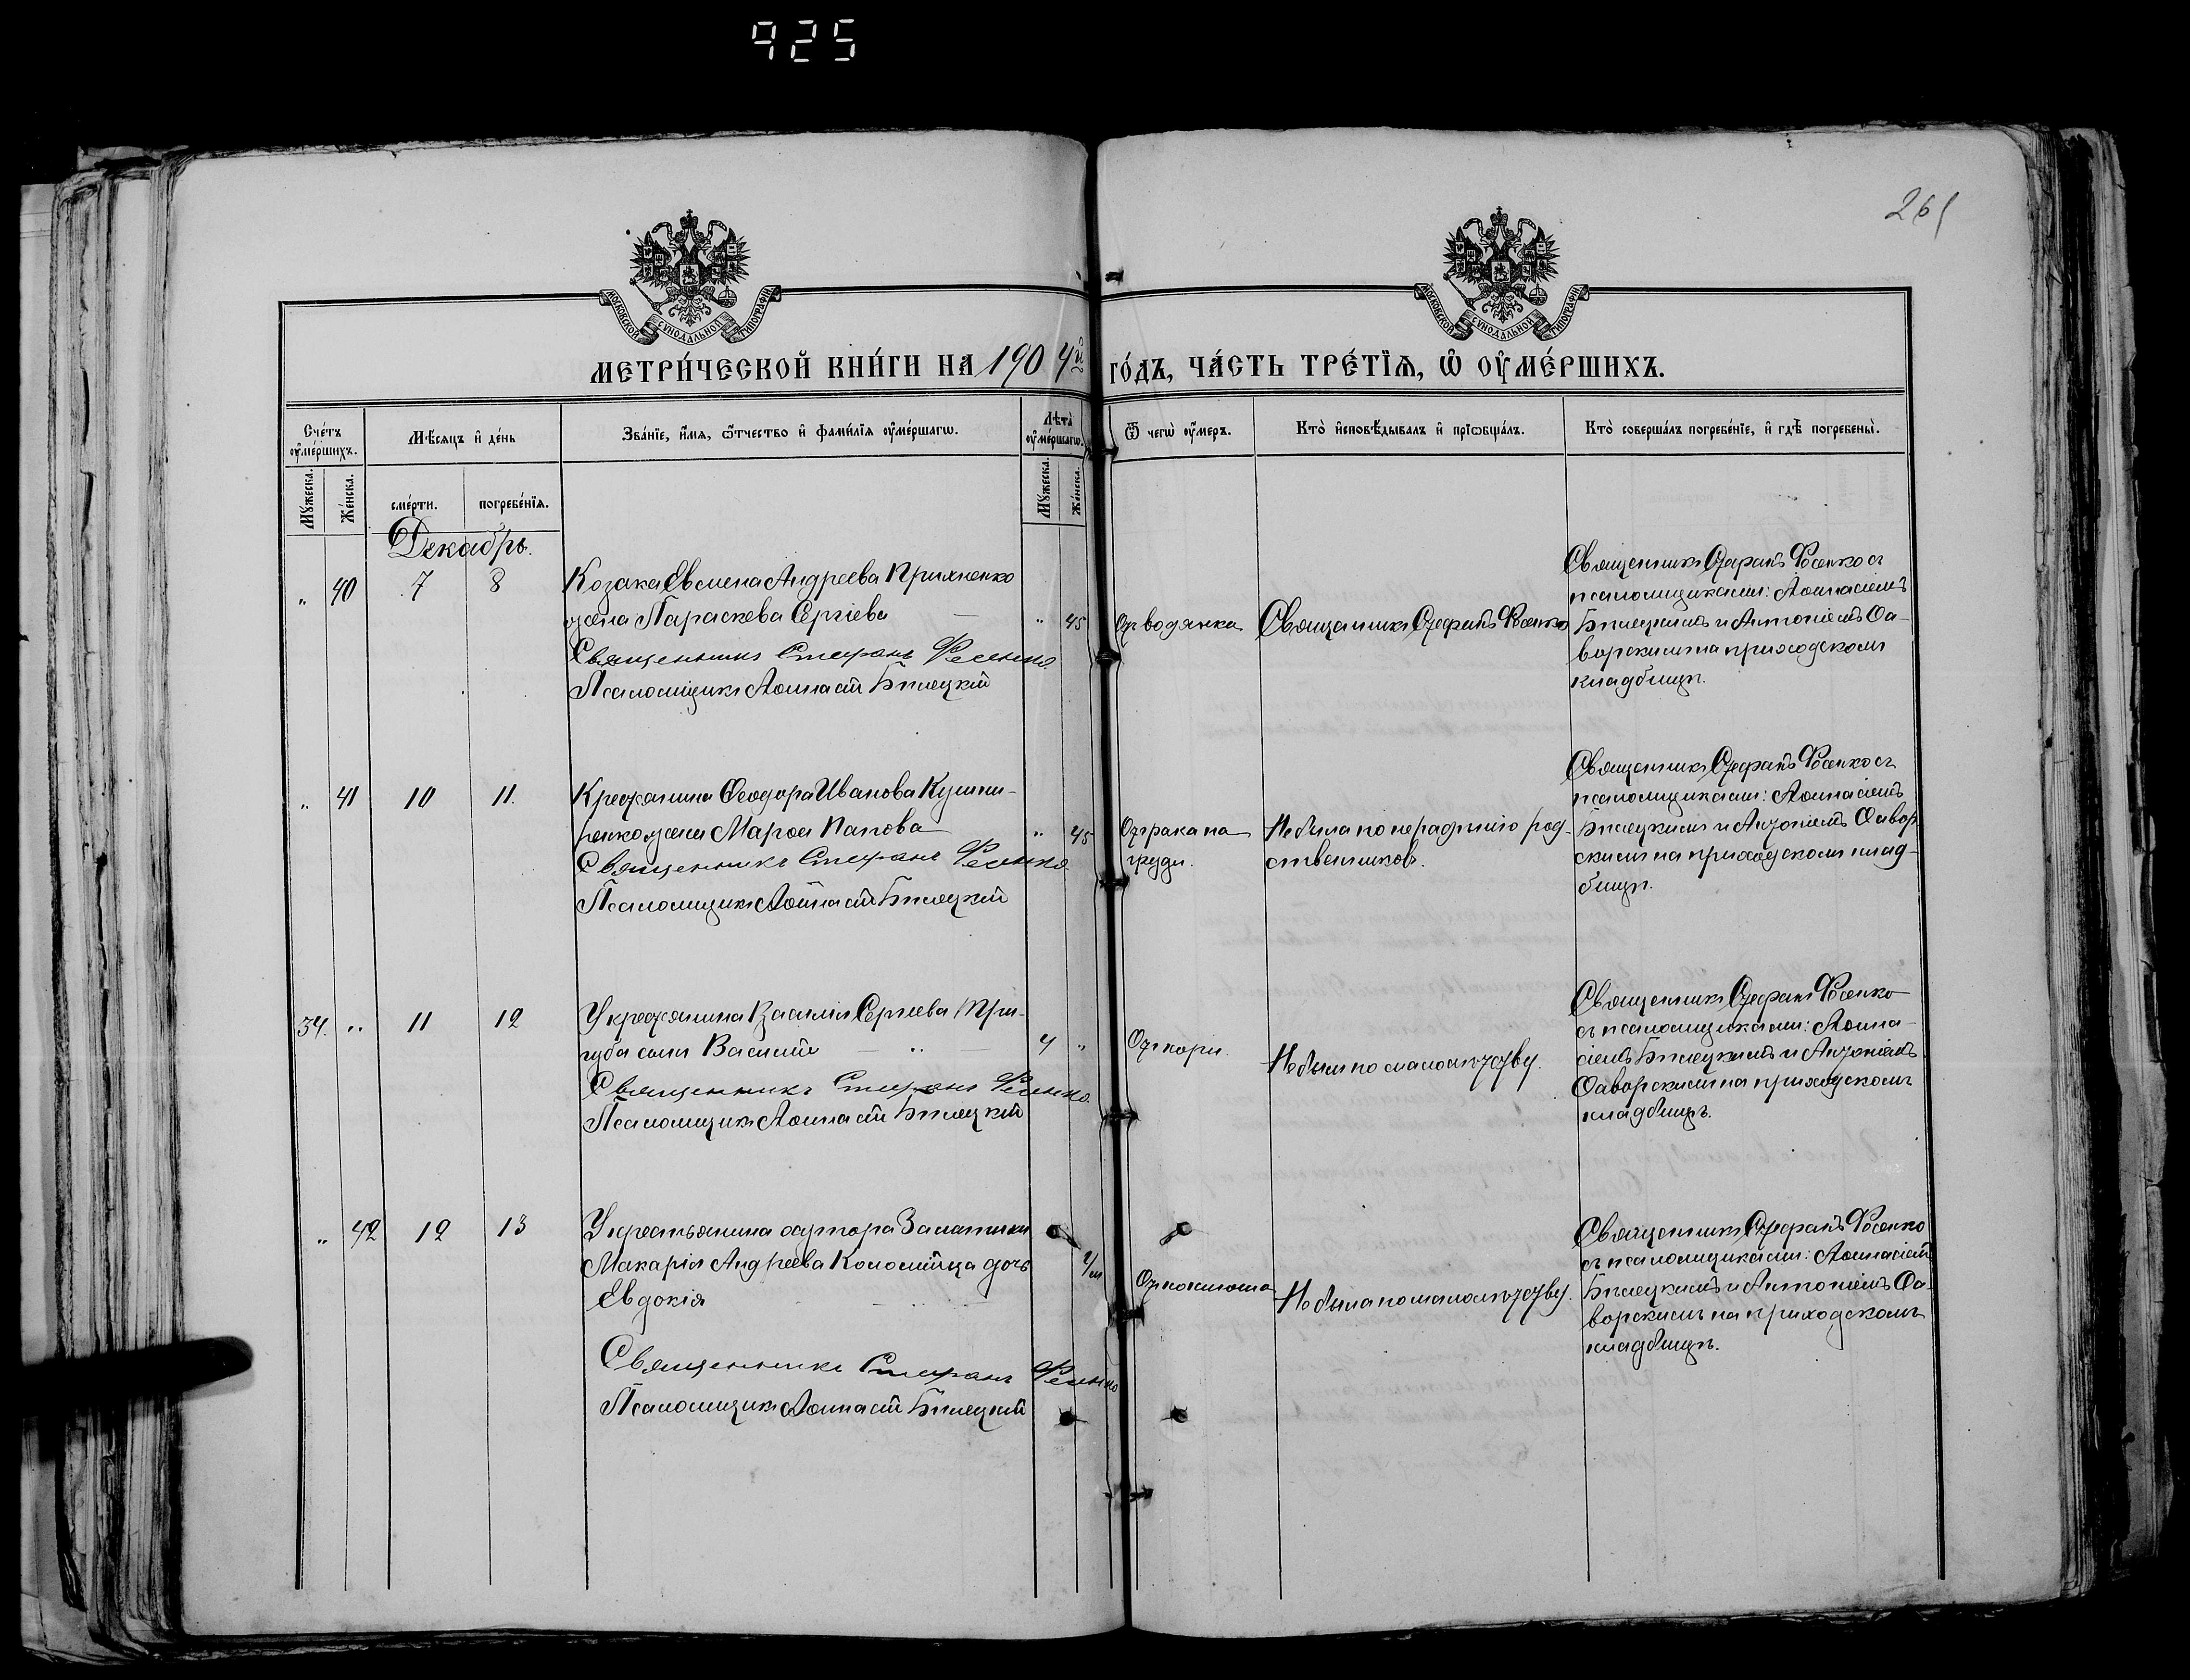 925
261
МОСКОВСКОЙ СУНОДАЛЬНОЙ ТИПОГРАФІИ
МОСКОВСКОЙ СУНОДАЛЬНОЙ ТИПОГРАФІИ
МЕТРИ́ЧЕСКОЙ КНИ́ГИ НА 1904й ГО́ДЪ, ЧА́СТЬ ТРЕ́ТЇѦ, Ѡ҆ ОУ҆МЕ́РШИХЪ.
Сче́тъ оу҆ме́ршихъ.
Мѣ́сяцъ и҆ де́нь
Зва́нїе, и҆́мѧ, ѻ҆́тчество и҆ фами́лїѧ оу҆ме́ршагѡ.
Лѣ́та оу҆ме́ршагѡ.
Ѿ чегѡ̀ оу҆́меръ.
Кто̀ и҆сповѣ́дывалъ и҆ прїѡбща́лъ.
Кто̀ соверша́лъ погребе́нїе, и҆ гдѣ̀ погребены̀.
Мꙋ́жеска.
Же́нска.
сме́рти.
погребе́нїѧ.
Мꙋ́жеска.
Же́нска.
Декабрь.
" 40 7 8
Козака Евсмена Андреева Прихненко
жена Параскева Сергіева
Священникъ Стефанъ Фесенко
Псаломщикъ Аѳанасій Бѣлецкій
" 45
От водянка
Священникъ Стефанъ Фесенко
Священникъ Стефанъ Фесенко съ
псаломщиками: Аѳанасіемъ
Бѣлецкимъ и Антоніемъ Са-
ворскимъ на приходскомъ
кладбищѣ.
" 41 10 11.
Крестьянина Ѳеодора Иванова Кушни-
ренко жена Марѳа Папова
Священникъ Стефанъ Фесенко
Псаломщикъ Аѳанасій Бѣлецкій
" 45
От рака на
груди.
Не была по нерадѣнію род-
ственниковъ.
Священникъ Стефанъ Фесенко съ
псаломщиками: Аѳанасіемъ
Бѣлецкимъ и Антоніемъ Савор
скимъ на приходскомъ клад-
бищѣ.
34. " 11 12
У крестьянина Василія Сергіева Три-
губа сынъ Василій
Священникъ Стефанъ Фесенко
Псаломщикъ Аѳанасій Бѣлецкій
4 "
От кори.
Не былъ по малолѣтству.
Священникъ Стефанъ Фесенко
съ псаломщиками: Аѳана-
сіемъ Бѣлецкимъ и Антоніемъ
Саворскимъ на приходскомъ
кладбищѣ.
" 42 12 13
У крестьянина хутора
Макарія Андреева Коломійца дочь
Евдокія
Священникъ Стефанъ Фесенко
Псаломщикъ Аѳанасій Бѣлецкій
От коклюша
Не была по малолѣтству.
Священникъ Стефанъ Фесенко
съ псаломщиками: Аѳанасіемъ
Бѣлецкимъ и Антоніемъ Са-
ворскимъ на приходскомъ
кладбищѣ.